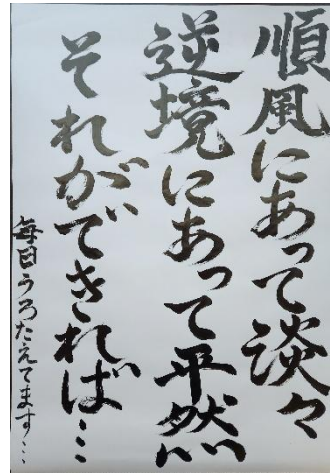 順風にあって淡々
逆境にあって平然
それができれば…
毎日うろたえてます…